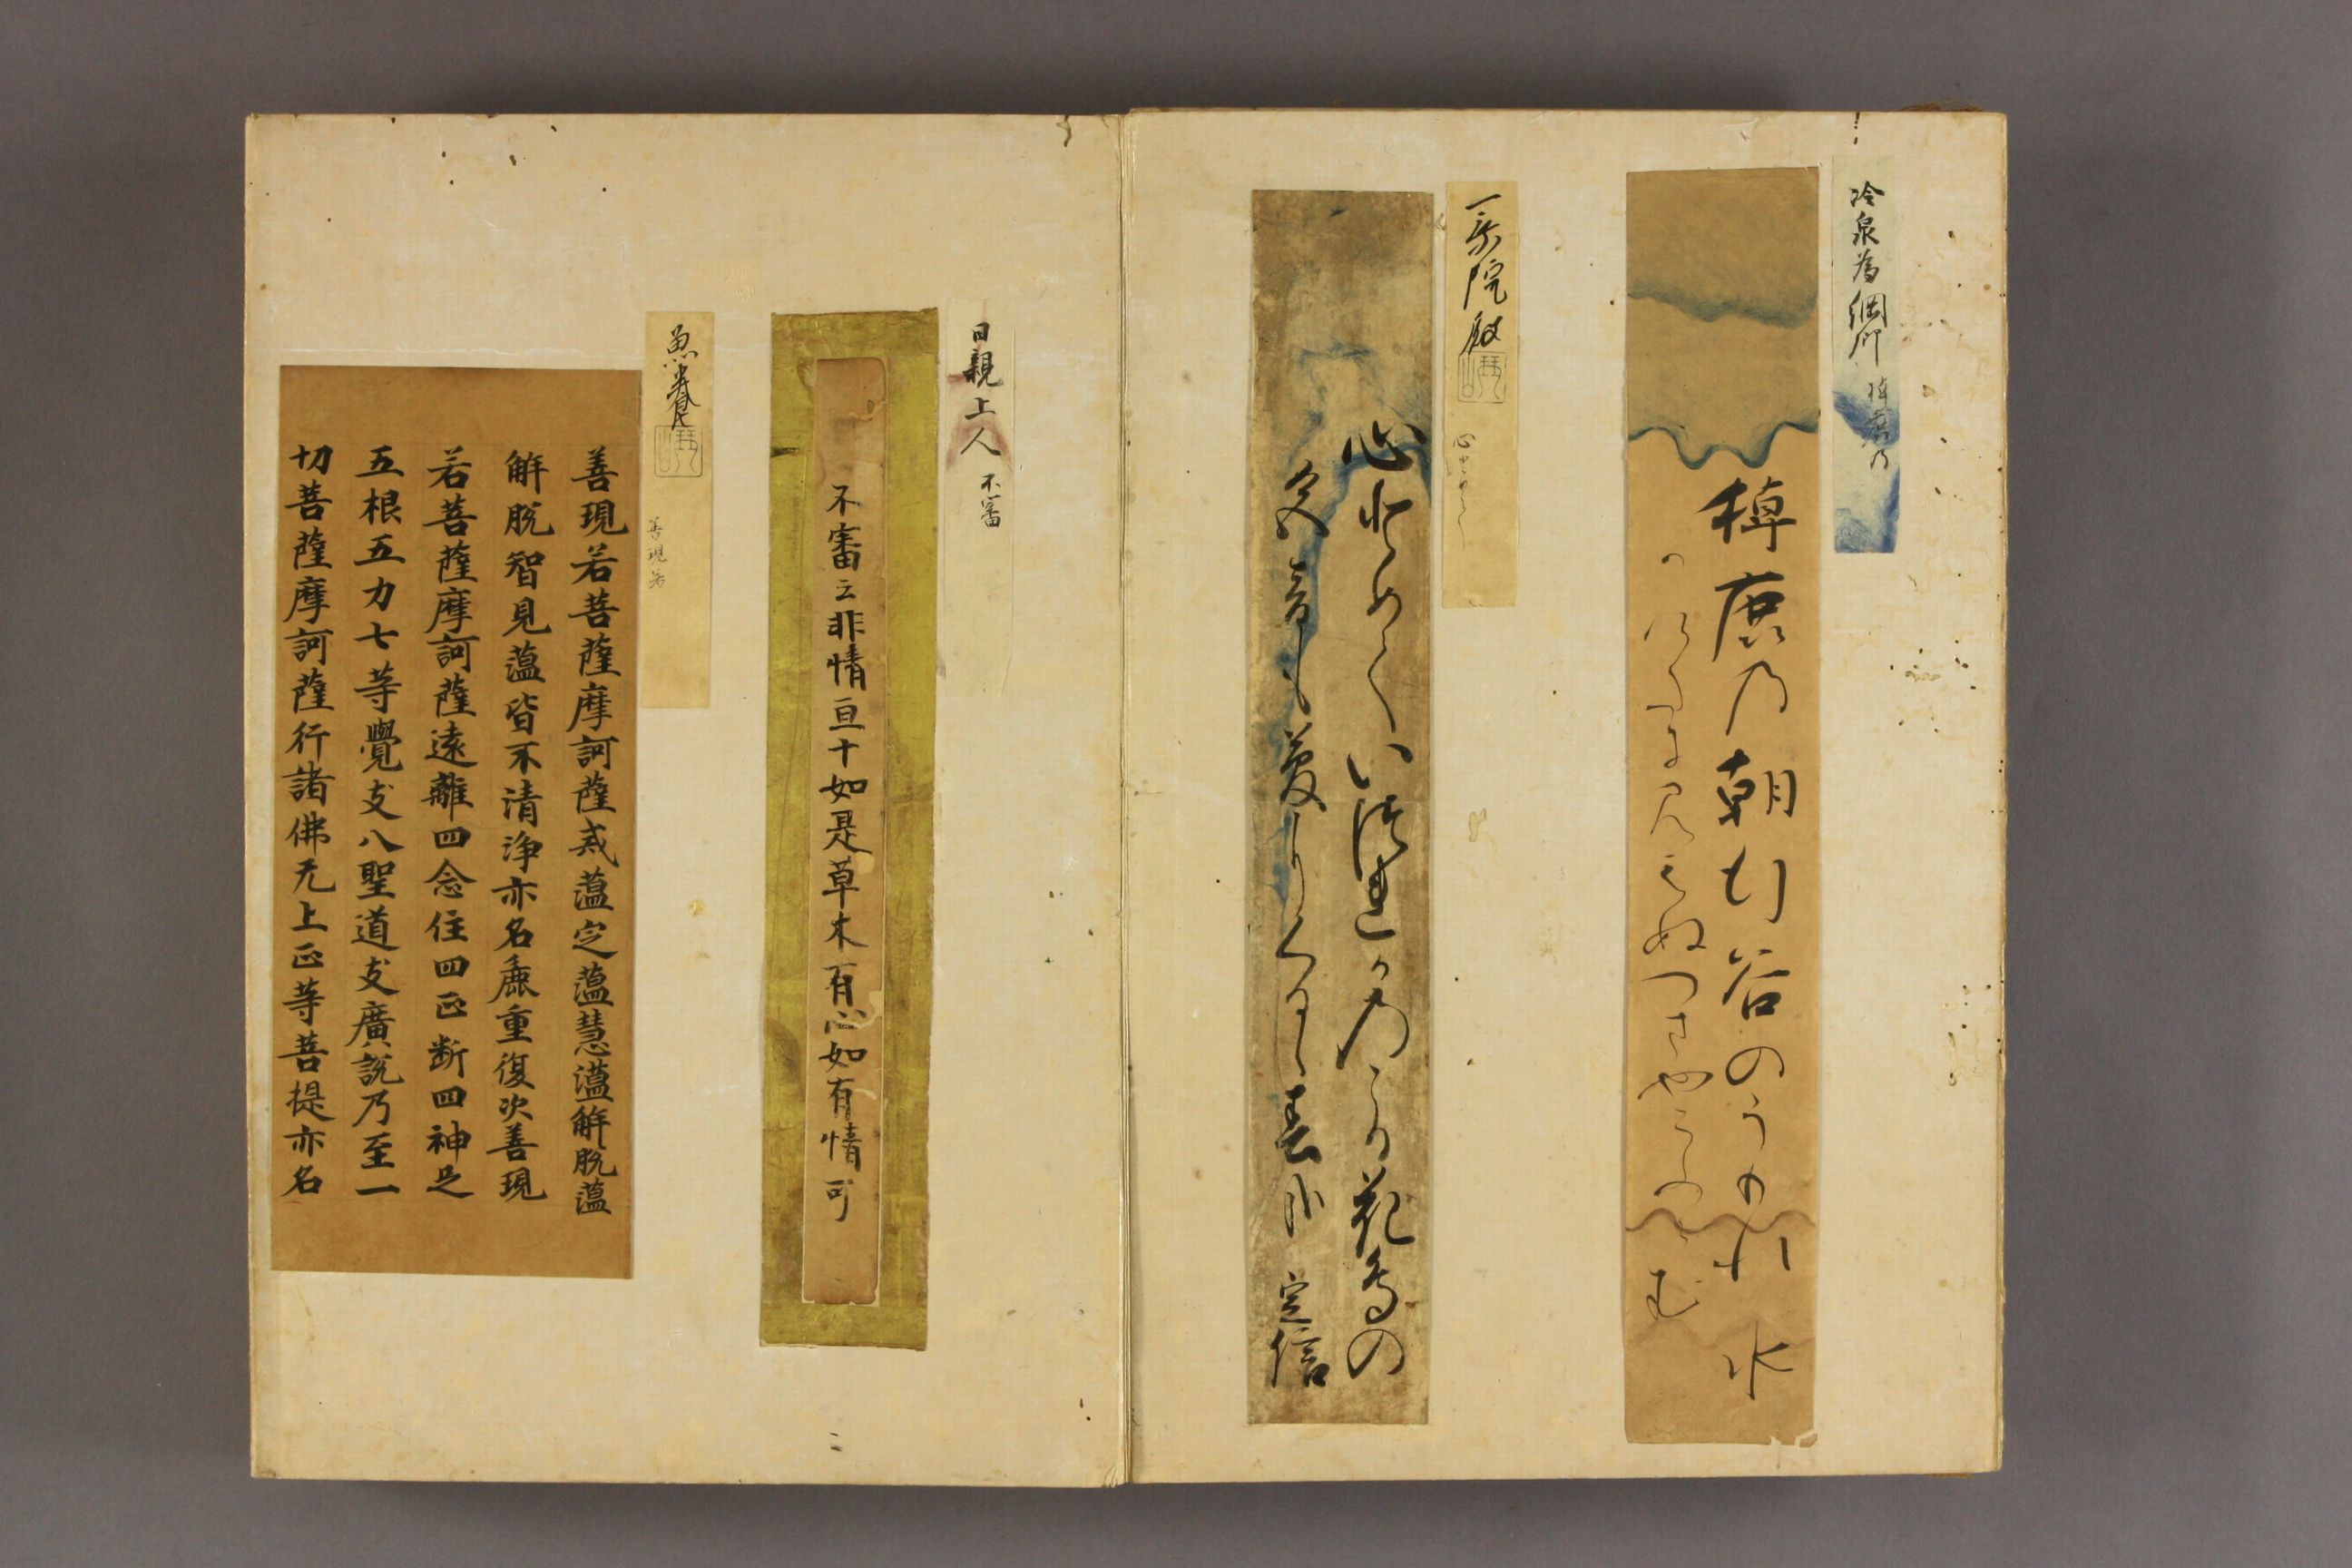 冷泉為綱卿
棹鹿乃
棹鹿乃朝行谷のうもれ水
一乗院殿
心とめて
心とめていつれかのこる花鳥の
定信
日親上人
不審
不審云非情亘十如是草木有心如有情可
魚養
善現若
善現若菩薩摩訶薩戒蘊定蘊慧蘊解脫蘊
解脫智見蘊皆不清淨亦名麁重復次善現
若菩薩摩訶薩遠離四念住四正断四神足
五根五力七等覺支八聖道支廣說乃至一
切菩薩摩訶薩行諸佛无上正等菩提亦名